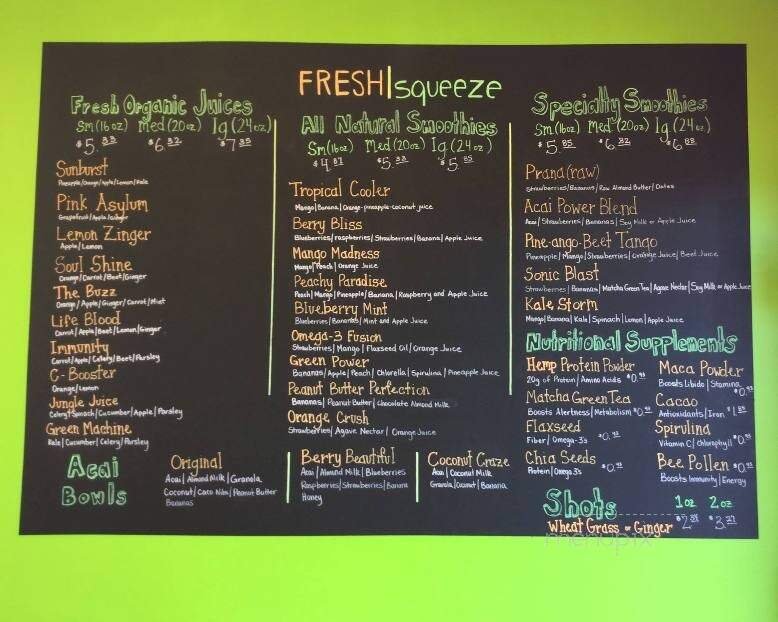 FRESH|squeeze
Fresh Organic Juices
Sm (16oz) Med (20oz) lg (24oz)
Sunburst
Pineapple/Orange/Apple/Lemon/Kale
Pink Asylum
Grapefruit/Apple/Ginger
Lemon Zinger
Apple/Lemon
Soul Shine
Orange/Carrot/Beet/Ginger
The Buzz
Orange/Apple/Ginger/Carrot/Mint
Life Blood
Carrot/Apple/Beet/Lemon/Ginger
Immunity
Carrot/Apple/Celery/Beet/Parsley
C-Booster
Orange/Lemon
Jungle Juice
Celery/Spinach/Cucumber/Apple/Parsley
Green Machine
Kale/Cucumber/Celery/Parsley
All Natural Smoothies
Sm (16oz) Med (20oz) lg (24oz)
Tropical Cooler
Mango/Banana/Orange-pineapple-coconut juice
Berry Bliss
Blueberries/raspberries/Strawberries/Banana/Apple Juice
Mango Madness
Mango/Peach/Orange Juice
Peachy Paradise
Peach/Mango/Pineapple/Banana/Raspberry and Apple Juice
Blueberry Mint
Blueberries/Bananas/Mint and Apple Juice
Omega-3 Fusion
Strawberries/Mango/Flaxseed Oil/Orange Juice
Green Power
Bananas/Apple/Peach/Chlorella/Spirulina/Pineapple Juice
Peanut Butter Perfection
Bananas/Peanut Butter/Chocolate Almond Milk
Orange Crush
Strawberries/Agave Nectar/Orange Juice
Specialty Smoothies
Sm (16oz) Med (20oz) lg (24oz)
$5.85 $6.32 $6.88
Prana (raw)
Strawberries/Bananas/Raw Almond Butter/Dates
Acai Power Blend
Acai/Strawberries/Bananas/Soy Milk or Apple Juice
Pine-ango-Beet Tango
Pineapple/Mango/Strawberries/Orange Juice/Beet Juice
Sonic Blast
Strawberries/Bananas/Matcha Green Tea/Agave Nectar/Soy Milk or Apple Juice
Kale Storm
Mango/Banana/Kale/Spinach/Lemon/Apple Juice
Nutritional Supplements
Hemp Protein Powder
20g of Protein/Amino Acids
Matcha Green Tea
Boosts Alertness/Metabolism
Flaxseed
Fiber/Omega-3s
Chia Seeds
Protein/Omega 3s
Maca Powder
Boosts Libido/Stamina
Cacao
Antioxidants/Iron
Spirulina
Vitamin C/Chlorophyll
Bee Pollen
Boosts Immunity/Energy
Shots 1oz 2oz
Wheat Grass or Ginger
Acai Bowls
Original
Acai/Almond Milk/Granola
Coconut/Caco Nibs/Peanut Butter
Bananas
Berry Beautiful
Acai/Almond Milk/Blueberries
Raspberries/Strawberries/Banana
Honey
Coconut Craze
Acai/Coconut Milk
Granola/Coconut/Banana
menupix